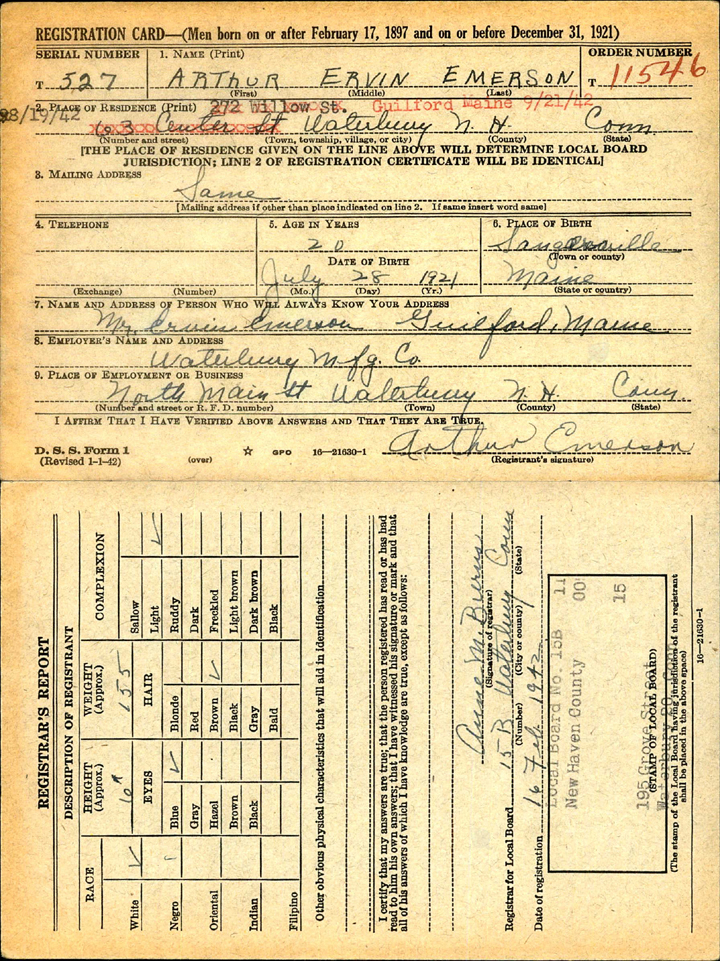 REGISTRATION CARD—(Men born on or after February 17, 1897 and on or before December 31, 1921)
SERIAL NUMBER 1. NAME (Print) ORDER NUMBER
T 527 ARTHUR ERVIN EMERSON T 11546
(First) (Middle) (Last)
2. PLACE OF RESIDENCE (Print) 272 Willow St. Guilford Maine 9/21/42
8/19/42 Center St Waterbury N. H. Conn
(Number and street) (Town, township, village, or city) (County) (State)
[THE PLACE OF RESIDENCE GIVEN ON THE LINE ABOVE WILL DETERMINE LOCAL BOARD
JURISDICTION; LINE 2 OF REGISTRATION CERTIFICATE WILL BE IDENTICAL]
3. MAILING ADDRESS
Same
[Mailing address if other than place indicated on line 2. If same insert word same]
4. TELEPHONE 5. AGE IN YEARS 6. PLACE OF BIRTH
20 Sangerville
(Town or county)
DATE OF BIRTH
July 28 1921 Maine
(Exchange) (Number) (Mo.) (Day) (Yr.) (State or country)
7. NAME AND ADDRESS OF PERSON WHO WILL ALWAYS KNOW YOUR ADDRESS
Mr. Ervin Emerson Guilford, Maine
8. EMPLOYER'S NAME AND ADDRESS
Waterbury Mfg. Co.
9. PLACE OF EMPLOYMENT OR BUSINESS
North Main St Waterbury N. H. Conn.
(Number and street or R. F. D. number) (Town) (County) (State)
I AFFIRM THAT I HAVE VERIFIED ABOVE ANSWERS AND THAT THEY ARE TRUE.
D. S. S. Form 1
(Revised 1-1-42) (over) ☆ GPO 16—21630-1 Arthur Emerson
(Registrant's signature)
REGISTRAR'S REPORT
DESCRIPTION OF REGISTRANT
RACE HEIGHT (Approx.) WEIGHT (Approx.) COMPLEXION
White 155 Sallow
EYES HAIR Light
Negro Blue Blonde Ruddy
Gray Red Dark
Oriental Hazel Brown Freckled
Brown Black Light brown
Indian Black Gray Dark brown
Bald Black
Filipino
Other obvious physical characteristics that will aid in identification
I certify that my answers are true; that the person registered has read or has had
read to him his own answers; that I have witnessed his signature or mark and that
all of his answers of which I have knowledge are true, except as follows:
Anne M. Burns
(Signature of registrar)
Registrar for Local Board 15 B Waterbury Conn
(Number) (City or county) (State)
Date of registration 16 Feb. 1942
Local Board No. 15B 11
New Haven County 00
15
195 Grove Street
(STAMP OF LOCAL BOARD)
Waterbury
(The stamp of the Local Board having jurisdiction of the registrant
shall be placed in the above space)
16—21630-1